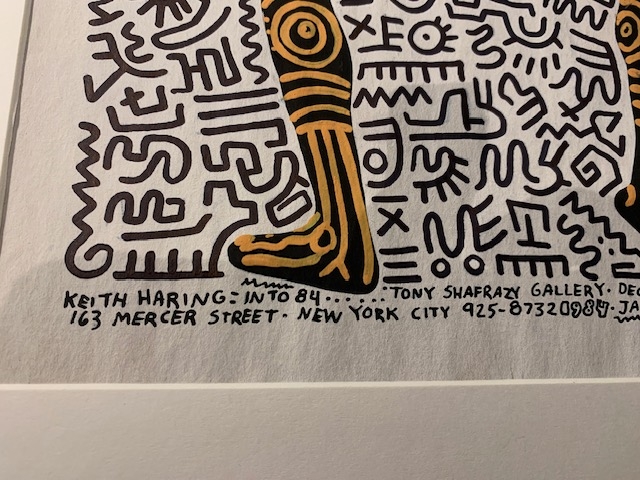 KEITH HARING: INTO 84...... TONY SHAFRAZY GALLERY. DEC
163 MERCER STREET. NEW YORK CITY 925-8732 1984. JA